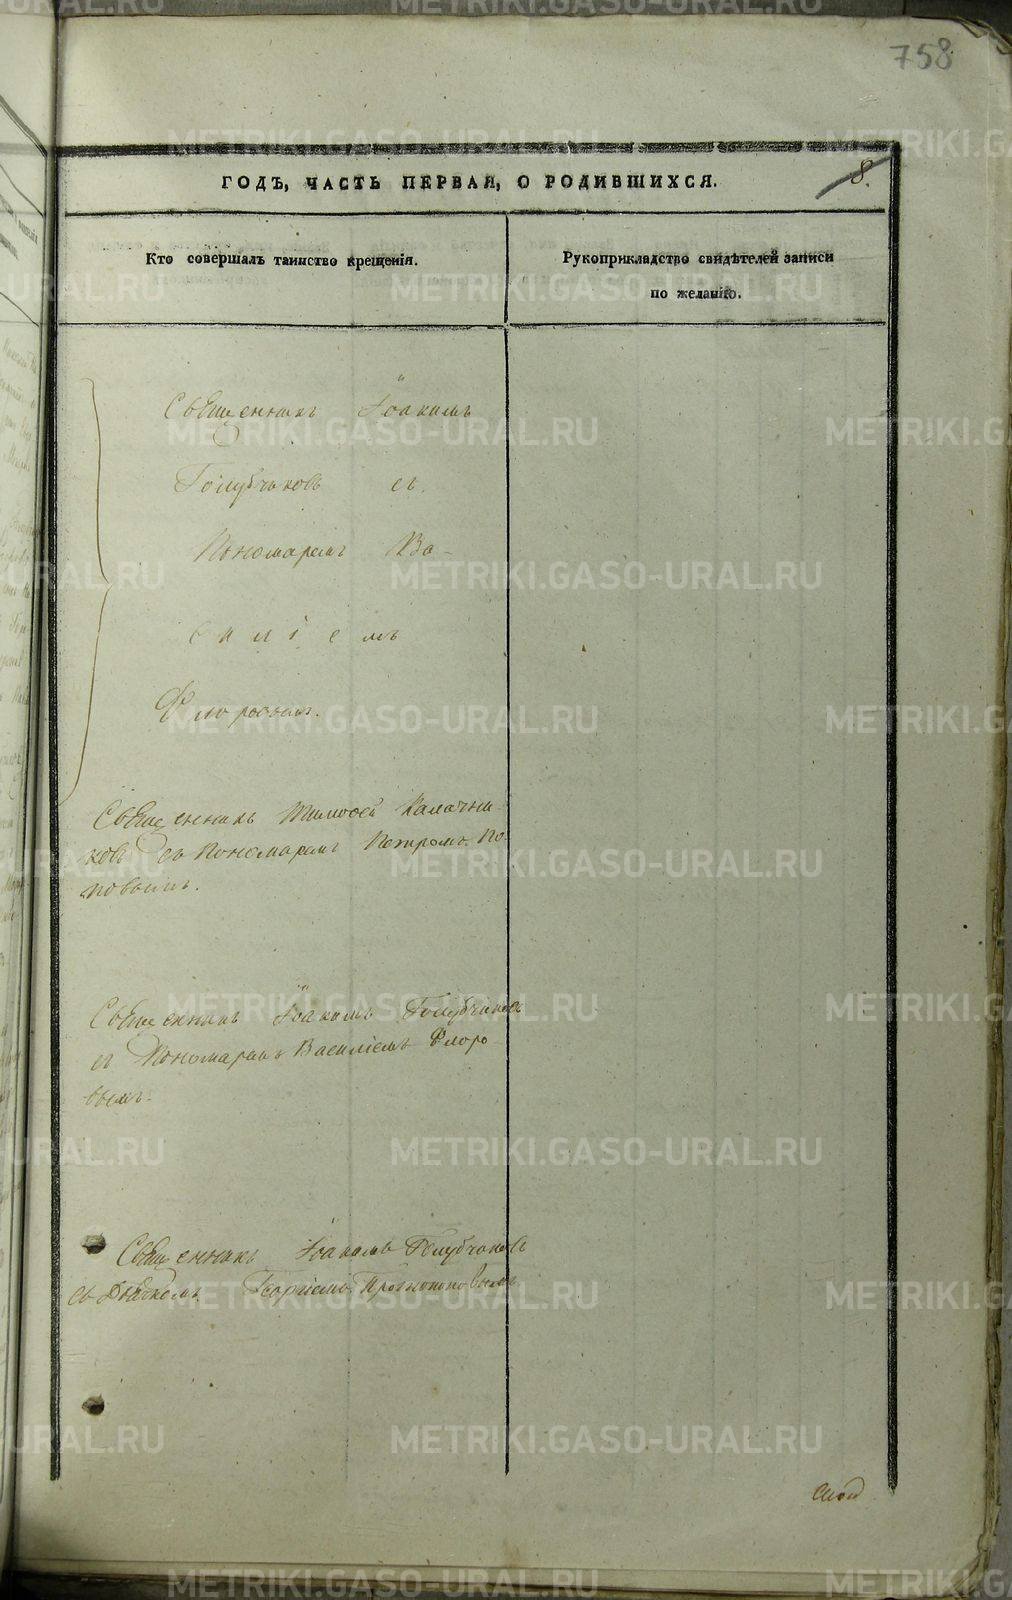 758
ГОДЪ, ЧАСТЬ ПЕРВАЯ, О РОДИВШИХСЯ.
8.
Кто совершалъ таинство крещенія.
Рукоприкладство свидѣтелей записи
по желанію.
Священникъ Іоакимъ
Голубчиковъ съ
Пономаремъ Ва-
силіемъ
Флоровымъ.
Священникъ Тимофей Калачни-
ковъ съ Пономаремъ Петромъ По-
повымъ.
Священникъ Іоакимъ Голубчиковъ
съ Пономаремъ Василіемъ Флоро-
вымъ.
Священникъ Іоакимъ Голубчиковъ
съ Дьячкомъ Георгіемъ Протопоповымъ
METRIKI.GASO-URAL.RU